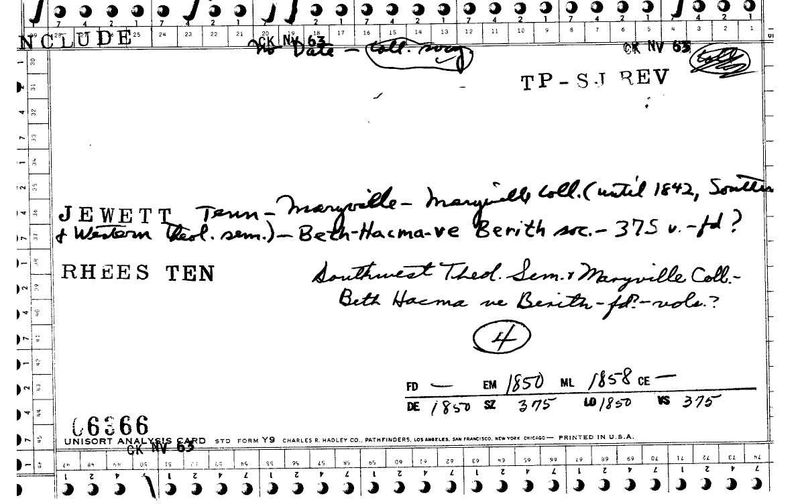 NCLUDE
CK NV 63 CK NV 63
No Date - Coll. socy
TP-SJ REV
JEWETT Tenn - Maryville - Maryville Coll. (until 1842, Southn
& Western Theol. sem.) - Beth-Hacma-ve Berith soc. - 375 v. - fd ?
RHEES TEN Southwest Theol. Sem. & Maryville Coll. -
Beth Hacma ve Berith - fd? - vols. ?
4
FD — EM 1850 ML 1858 CE —
DE 1850 SZ 375 LD 1850 VS 375
06366
UNISORT ANALYSIS CARD STD FORM Y9 CHARLES R. HADLEY CO., PATHFINDERS, LOS ANGELES, SAN FRANCISCO, NEW YORK CHICAGO — PRINTED IN U.S.A.
CK NV 63